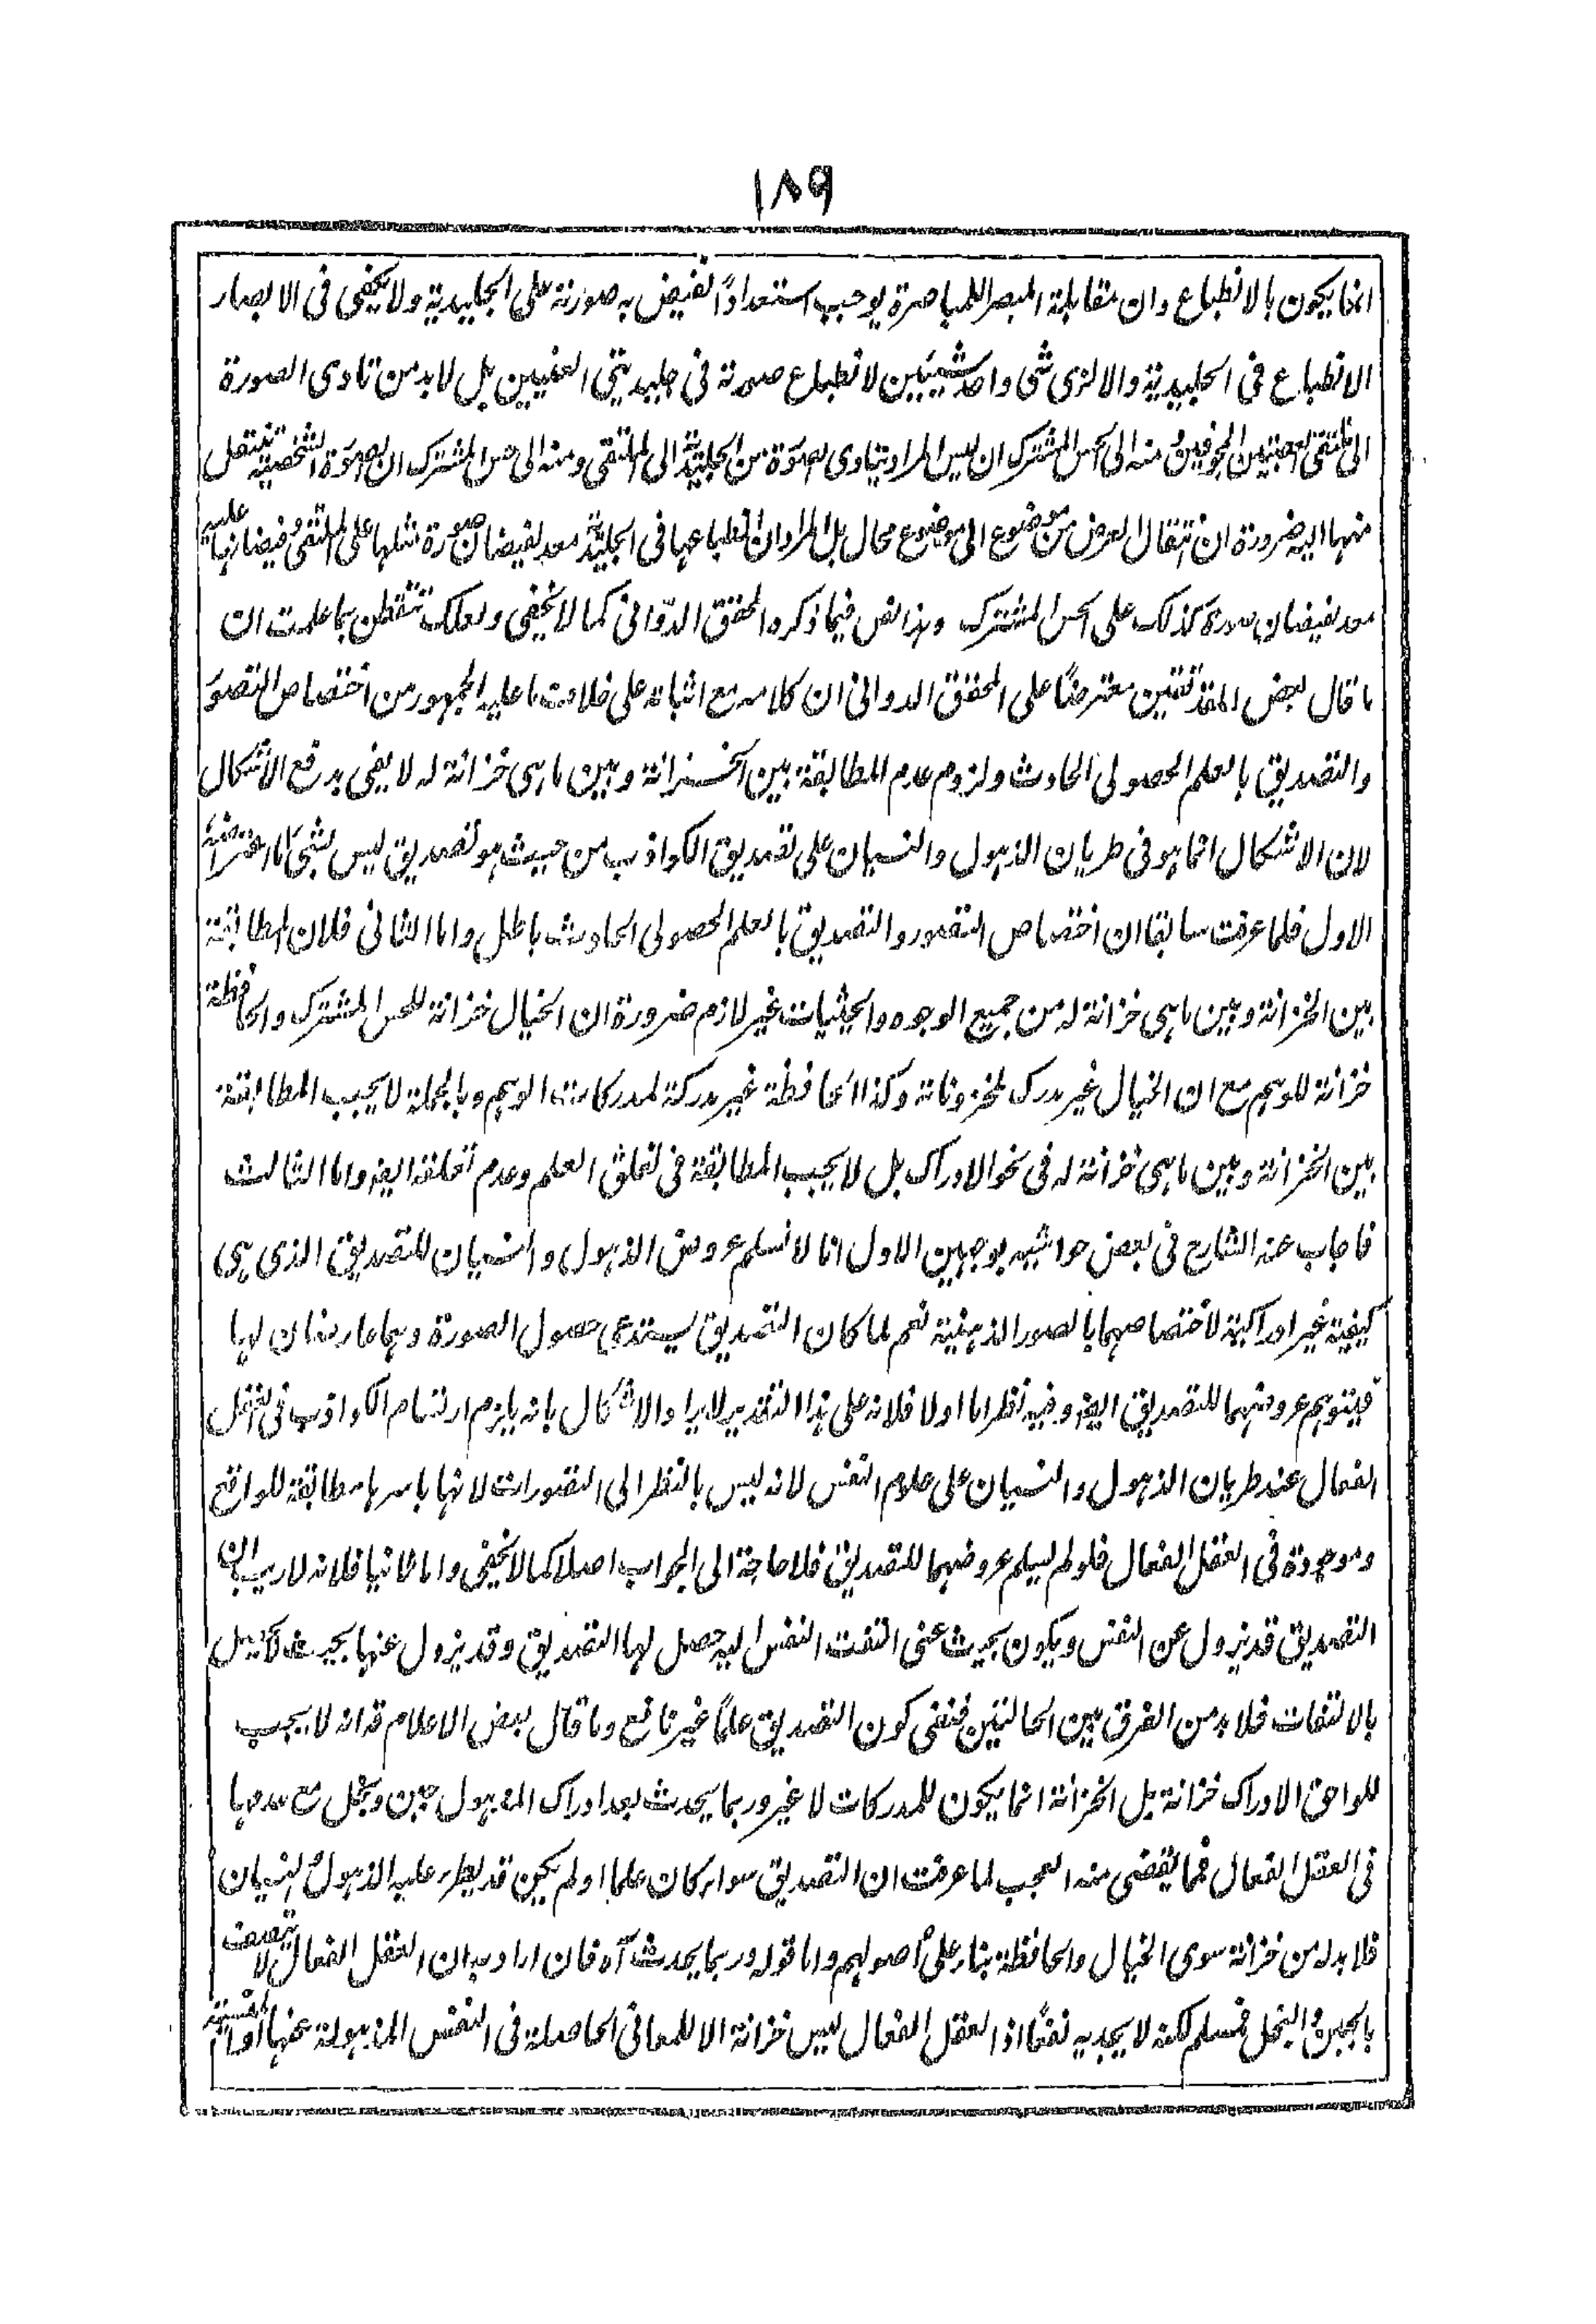 ١٨٩
انما يكون بالانطباع وان مقابلة المبصر للباصرة يوجب استعدادًا تفيض به صورته على الجليدية ولا يكفى فى الابصار
الانطباع فى الجليدية والا لزى شئ واحد شيئين لانطباع صورته فى جليديتى العينين بل لا بد من تادى الصورة
الى ملتقى العصبتين المجوفتين ومنه الى الحس المشترك ان ليس المراد بتادى الصورة من الجليدية الى الملتقى ومنه الى حس المشترك ان الصورة الشخصية تنتقل
منها اليه ضرورة ان انتقال العرض من موضوع الى موضوع محال بل المراد ان انطباعها فى الجليدية معد لفيضان صورة مثلها على الملتقى وفيضانها عليه
معد لفيضان صورة كذلك على الحس المشترك وهذا نص فيما ذكره المحقق الدوانى كما لا يخفى ولعلك تتفطن بما علمت ان
ما قال بعض المدققين معترضًا على المحقق الدوانى ان كلامه مع ابتنائه على خلاف ما عليه الجمهور من اختصاص التصور
والتصديق بالعلم الحصولى الحادث ولزوم عدم المطابقة بين الخزانة وبين ما هى خزانة له لا يفى بدفع الاشكال
لان الاشكال انما هو فى طريان الذهول والنسيان على تصديق الكواذب من حيث هو تصديق ليس بشئ اما اعتراضه
الاول فلما عرفت سابقا ان اختصاص التصور والتصديق بالعلم الحصولى الحادث باطل واما الثانى فلان المطابقة
بين الخزانة وبين ما هى خزانة له من جميع الوجوه والحيثيات غير لازم ضرورة ان الخيال خزانة للحس المشترك والحافظة
خزانة للوهم مع ان الخيال غير مدرك لمخزوناته وكذا الحافظة غير مدركة لمدركات الوهم وبالجملة لا يجب المطابقة
بين الخزانة وبين ما هى خزانة له فى نحو الادراك بل لا يجب المطابقة فى تعلق العلم وعدم تعلقه ايضا واما الثالث
فاجاب عنه الشارح فى بعض حواشيه بوجهين الاول انا لا نسلم عروض الذهول والنسيان للتصديق الذى هى
كيفية غير ادراكية لاختصاصهما بالصور الذهنية نعم لما كان التصديق يستدعى حصول الصورة وهما عارضان لها
فيتوهم عروضهما للتصديق ايضا وفيه نظر اما اولا فلانه على هذا التقدير لا يراد الاشكال بانه يلزم ارتسام الكواذب فى العقل
الفعال عند طريان الذهول والنسيان على علوم النفس لانه ليس بالنظر الى التصورات لانها باسرها مطابقة للواقع
وموجودة فى العقل الفعال فلو لم يسلم عروضهما للتصديق فلا حاجة الى الجواب اصلا كما لا يخفى واما ثانيا فلانه لا ريب ان
التصديق قد يزول عن النفس ويكون بحيث متى التفت النفس اليه حصل لها التصديق وقد يزول عنها بحيث لا يحصل
بالالتفات فلا بد من الفرق بين الحالتين فنفى كون التصديق علمًا غير نافع وما قال بعض الاعلام قد انه لا يجب
للواحق الادراك خزانة بل الخزانة انما يكون للمدركات لا غير وربما يحدث بعد ادراك المذهول جبن وبخل مع عدمها
فى العقل الفعال فمما يقضى منه العجب لما عرفت ان التصديق سواء كان علما او لم يكن قد يطرء عليه الذهول والنسيان
فلا بد له من خزانة سوى الخيال والحافظة بناء على اصولهم واما قوله وربما يحدث آه فان اراد به ان العقل الفعال لا يتصف
بالجبن والبخل فمسلم لكنه لا يجديه نفعًا اذ العقل الفعال ليس خزانة الا للمعانى الحاصلة فى النفس المذهولة عنها او المنسية